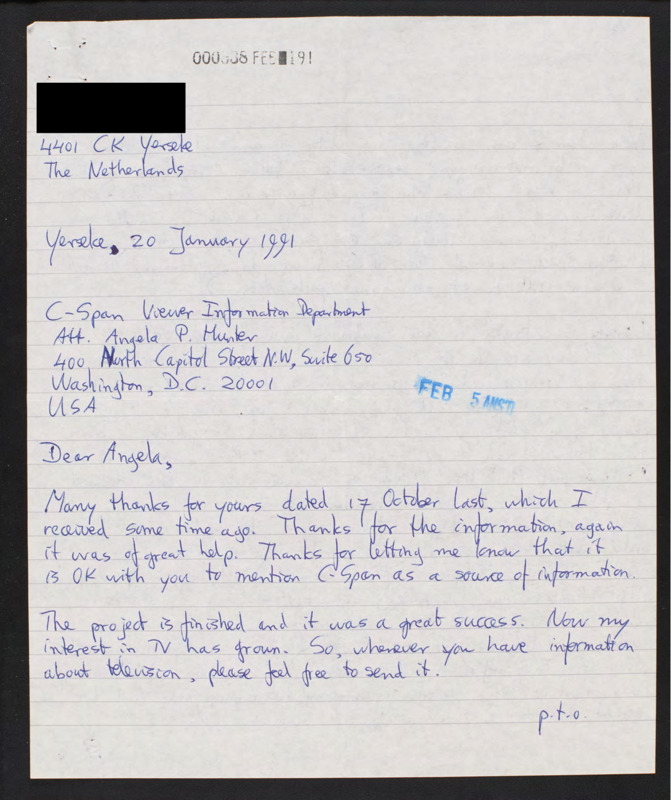 FEB 191
4401 CK Yerseke
The Netherlands
Yerseke, 20 January 1991
C-Span Viewer Information Department
Att. Angela P. Hunter
400 North Capitol Street N.W, Suite 650
Washington, D.C. 20001
USA
FEB 5 ANS'D
Dear Angela,
Many thanks for yours dated 17 October last, which I
received some time ago. Thanks for the information, again
it was of great help. Thanks for letting me know that it
is OK with you to mention C-Span as a source of information.
The project is finished and it was a great success. Now my
interest in TV has grown. So, whenever you have information
about television, please feel free to send it.
p.t.o.